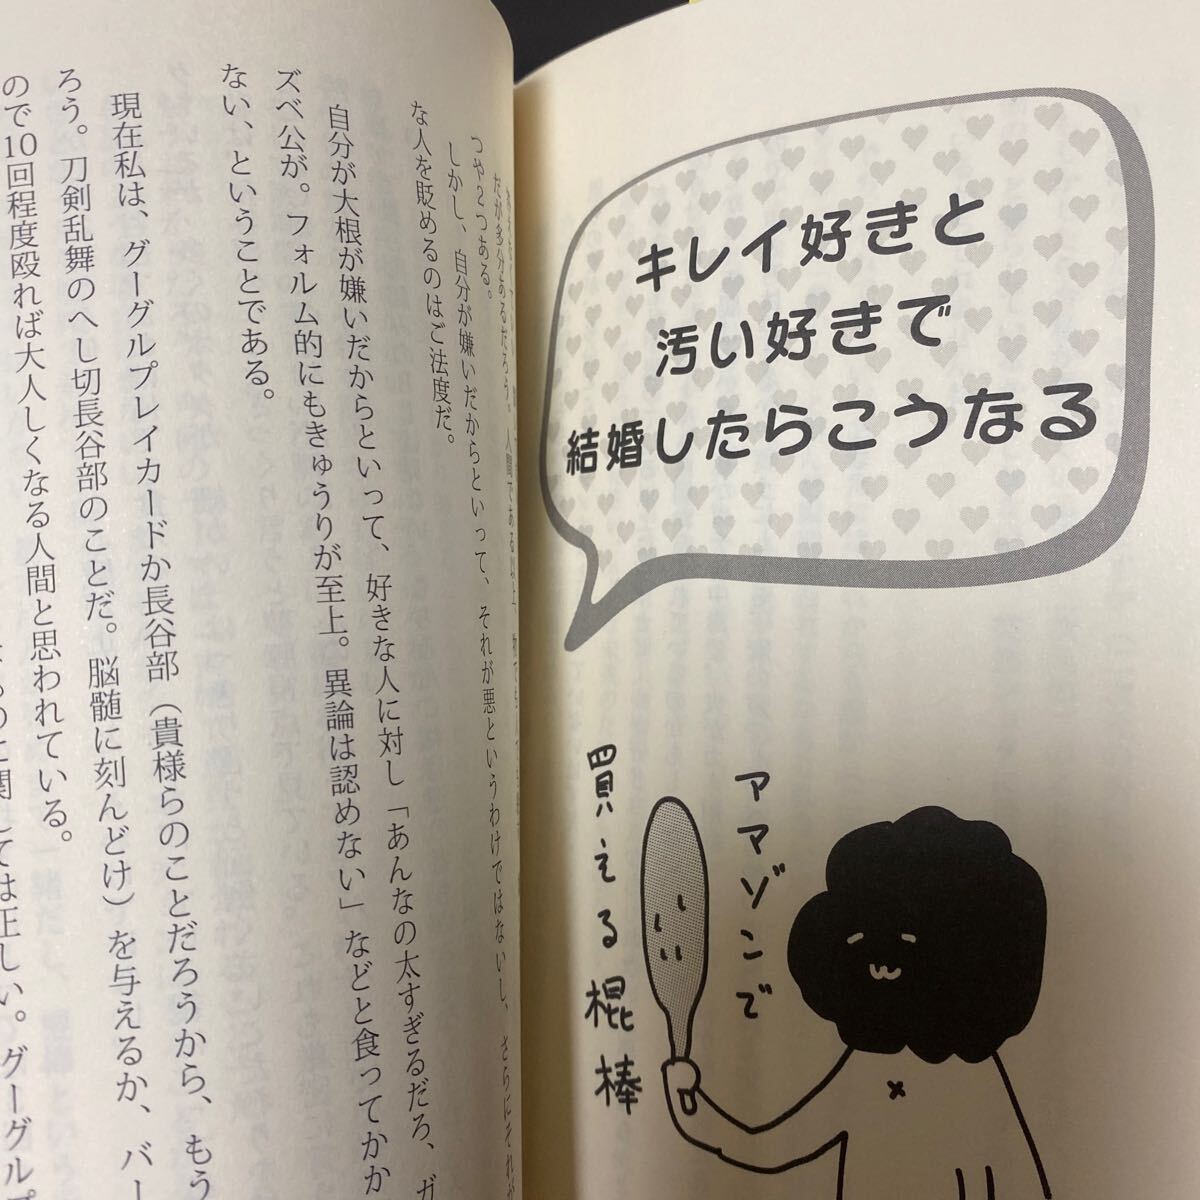 キレイ好きと
汚い好きで
結婚したらこうなる
アマゾンで
買える棍棒
だが多分あるだろう。人間である以上、
つや2つある。
しかし、自分が嫌いだからといって、それが悪というわけではないし、さらにそれが
な人を貶めるのはご法度だ。
自分が大根が嫌いだからといって、好きな人に対し「あんなの太すぎるだろ、ガ
ズベ公が。フォルム的にもきゅうりが至上。異論は認めない」などと食ってかか
ない、ということである。
現在私は、グーグルプレイカードか長谷部（貴様らのことだろうから、もう
ろう。刀剣乱舞のへし切長谷部のことだ。脳髄に刻んどけ）を与えるか、バー
ので10回程度殴れば大人しくなる人間と思われている。
に関しては正しい。グーグルプ